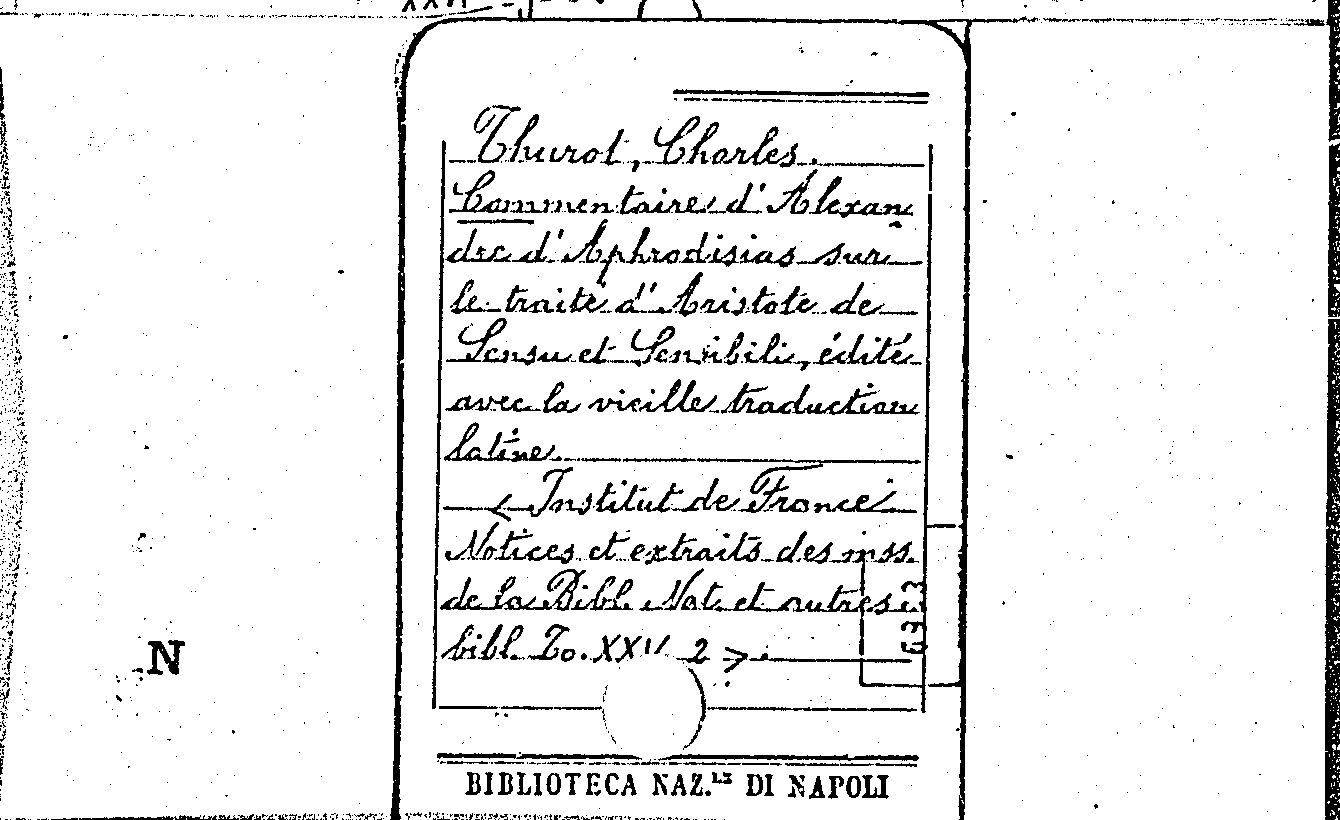 Thurot, Charles.
Commentaire d'Alexan
dre d'Aphrodisias sur
le traité d'Aristote de
Sensu et Sensibili, édité
avec la vieille traduction
latine.
< Institut de France
Notices et extraits des mss.
de la Bibl. Nat. et autres
bibl. To. 2 >.
N
BIBLIOTECA NAZ.LE DI NAPOLI